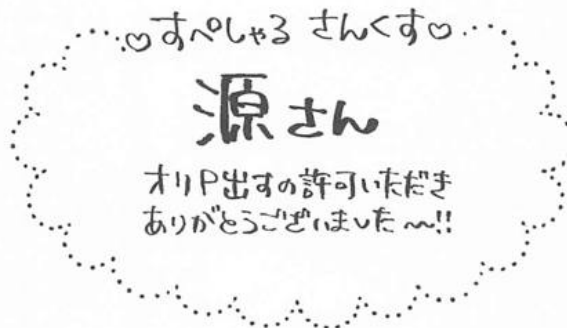 ♡すぺしゃる さんくす♡
源さん
オリP出すの許可いただき
ありがとうございました〜!!